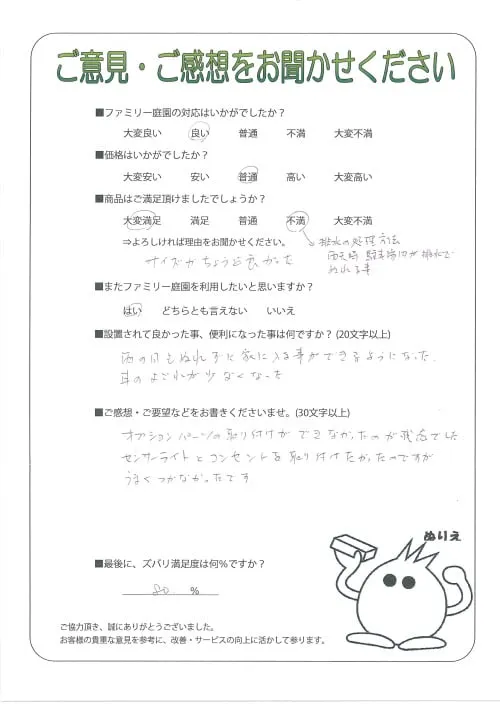 ご意見・ご感想をお聞かせください
■ファミリー庭園の対応はいかがでしたか？
大変良い 良い 普通 不満 大変不満
■価格はいかがでしたか？
大変安い 安い 普通 高い 大変高い
■商品はご満足頂けましたでしょうか？
大変満足 満足 普通 不満 大変不満
⇒よろしければ理由をお聞かせください。
排水の処理方法
雨天時 駐車場内が排水で
ぬれる事
サイズがちょうど良かった
■またファミリー庭園を利用したいと思いますか？
はい どちらとも言えない いいえ
■設置されて良かった事、便利になった事は何ですか？(20文字以上)
雨の日もぬれずに家に入る事ができるようになった.
車のよごれが少なくなった
■ご感想・ご要望などをお書きくださいませ。(30文字以上)
オプションパーツの取り付けができなかったのが残念でした
センサーライトとコンセントを取り付けたかったのですが
うまくつかなかったです
ぬりえ
■最後に、ズバリ満足度は何％ですか？
80 %
ご協力頂き、誠にありがとうございました。
お客様の貴重な意見を参考に、改善・サービスの向上に活かして参ります。